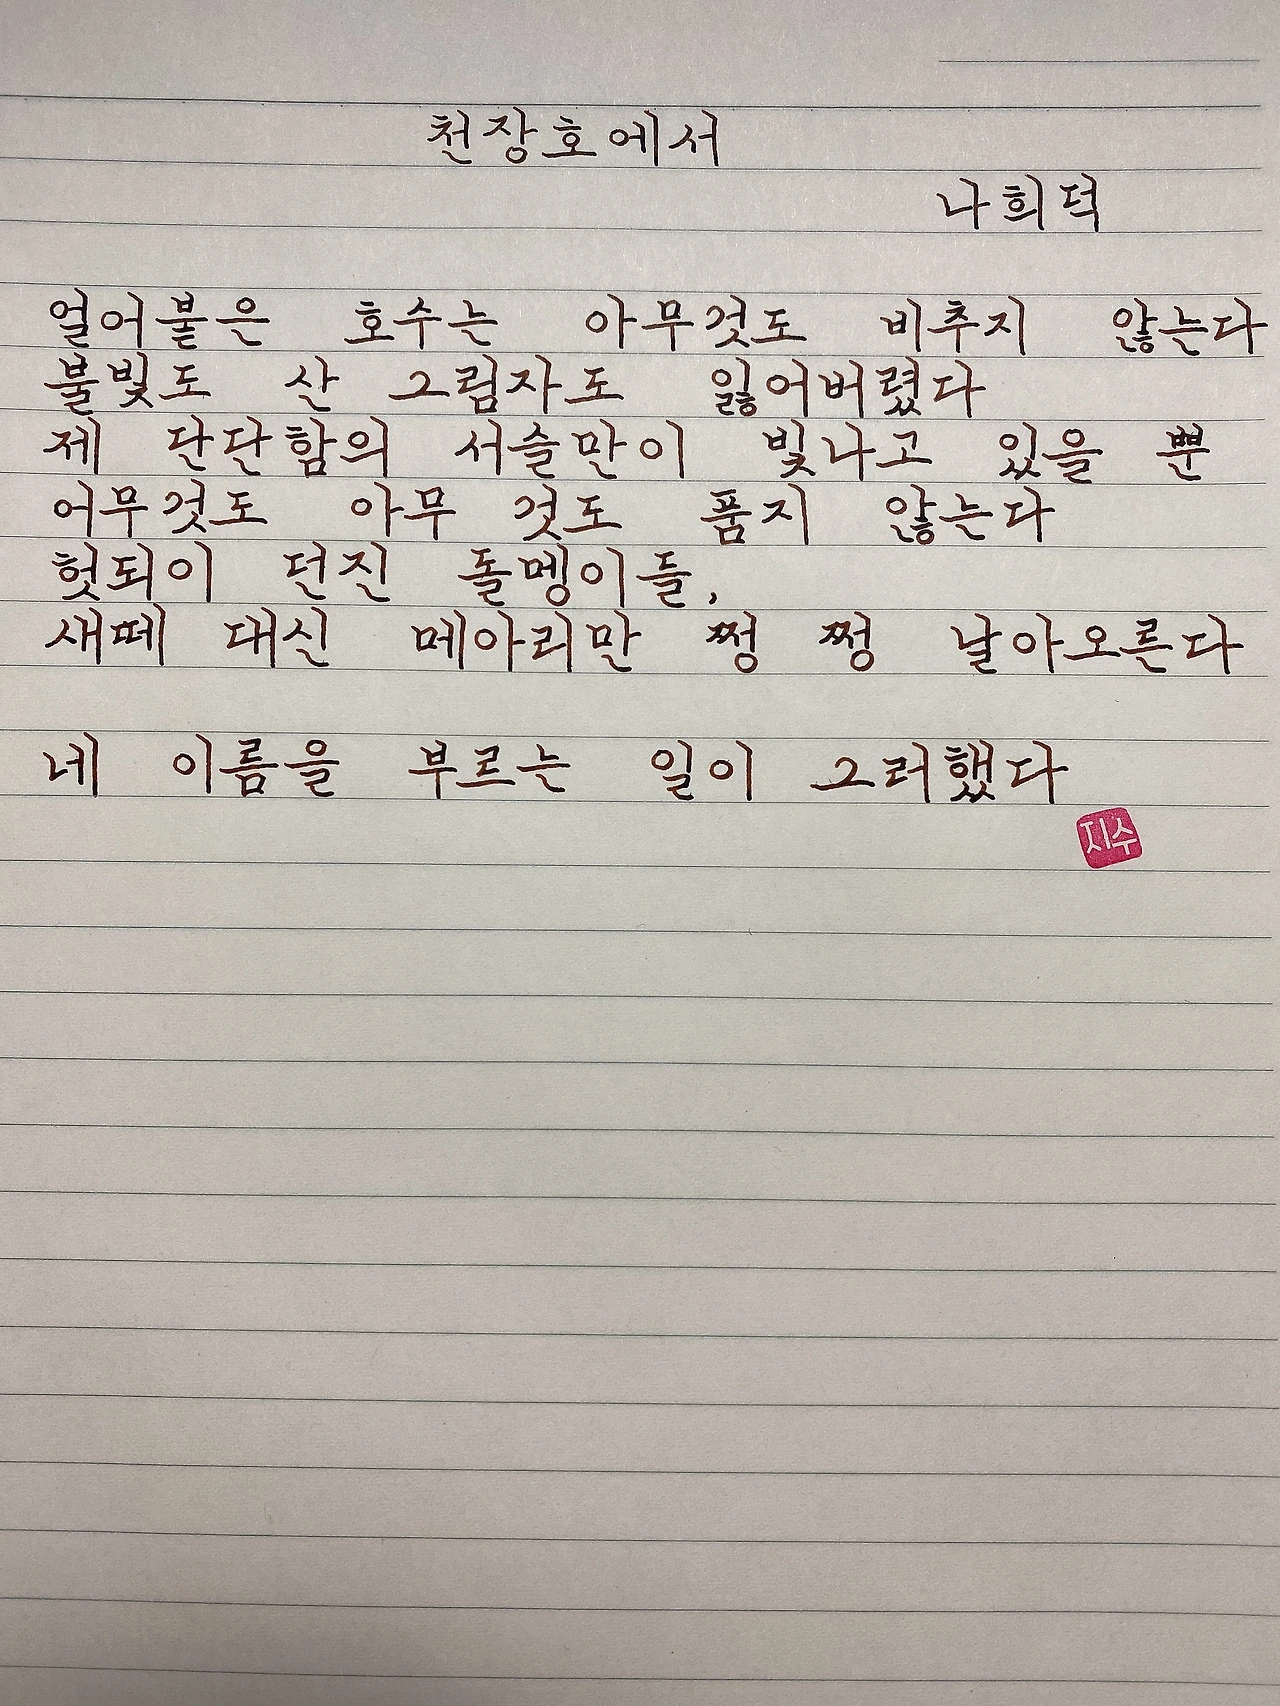 천장호에서
나희덕
얼어붙은 호수는 아무것도 비추지 않는다
불빛도 산 그림자도 잃어버렸다
제 단단함의 서슬만이 빛나고 있을 뿐
어무것도 아무 것도 품지 않는다
헛되이 던진 돌멩이들,
새떼 대신 메아리만 쩡 쩡 날아오른다
네 이름을 부르는 일이 그러했다
지수